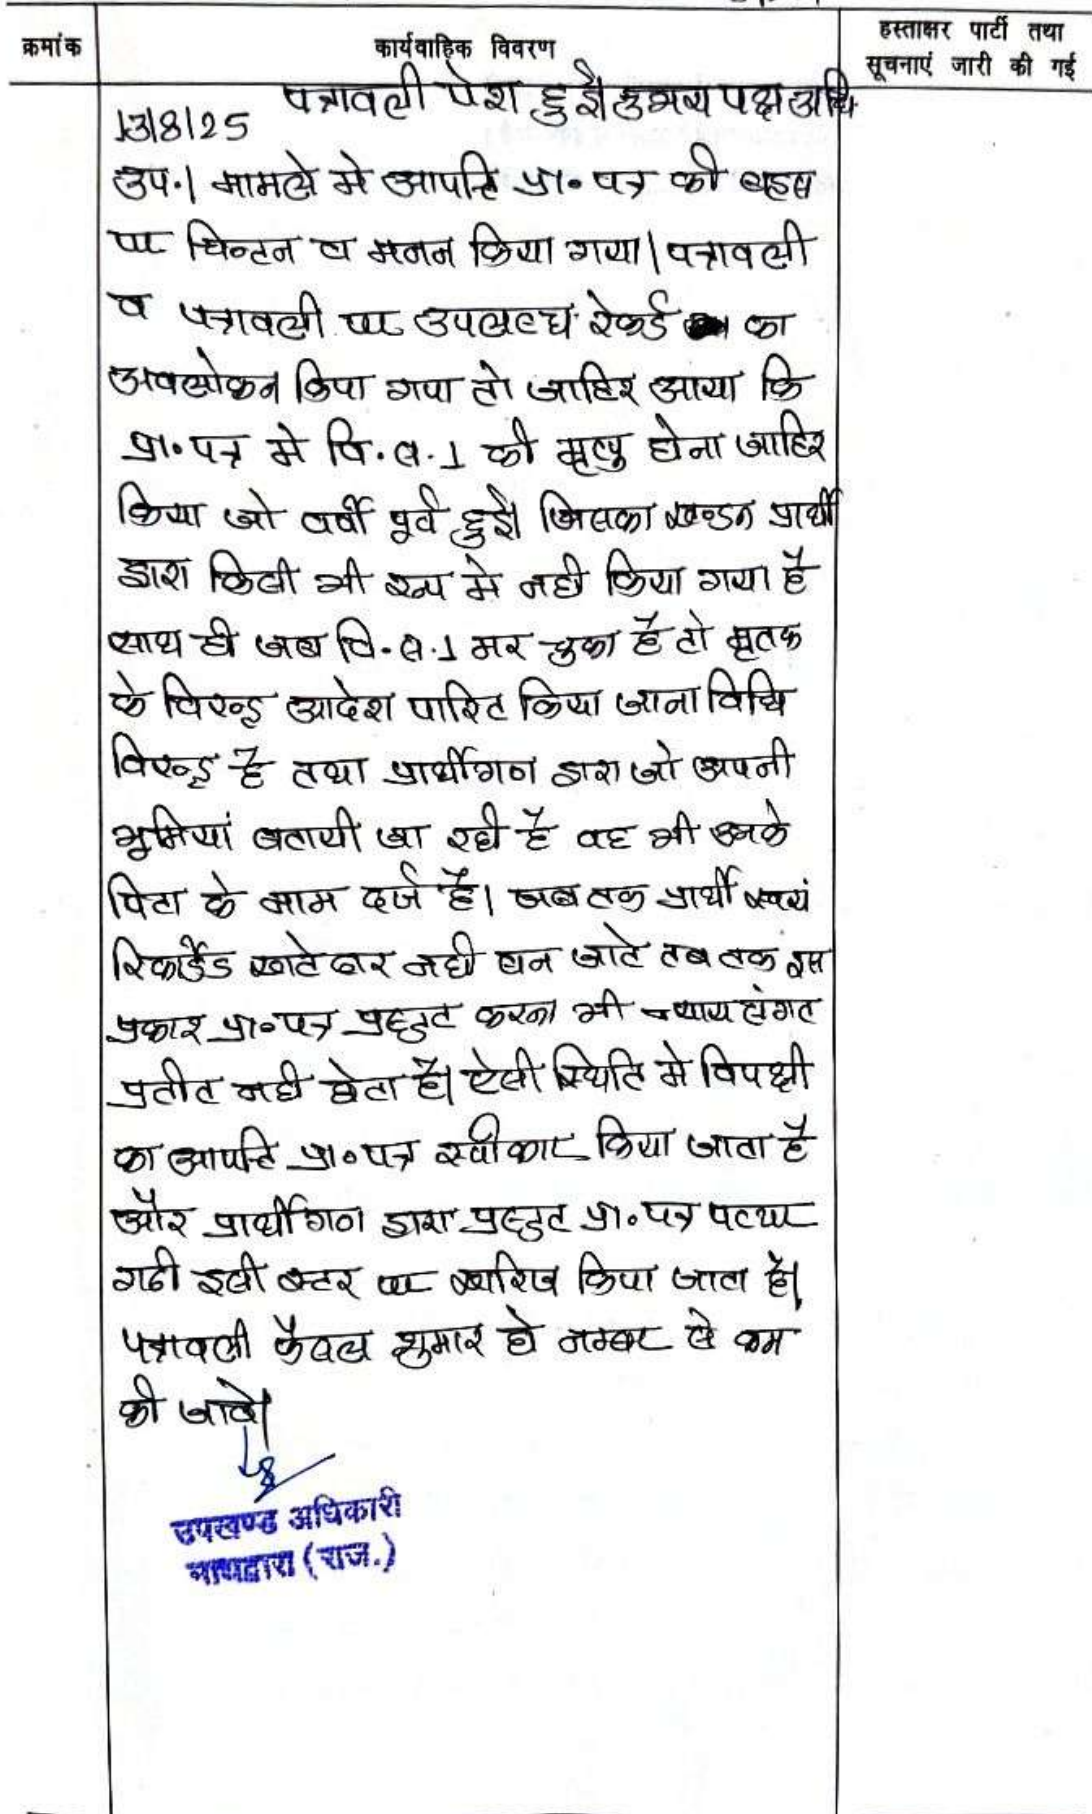 क्रमांक
कार्यवाहिक विवरण
हस्ताक्षर पार्टी तथा
सूचनाएं जारी की गई
13/8/25
पत्रावली पेश हुई। उभय पक्ष अधि
उप.। मामले मे आपत्ति प्रा॰ पत्र की बहस
पर चिन्तन व मनन किया गया। पत्रावली
व पत्रावली पर उपलब्ध रेकर्ड का
अवलोकन किया गया तो जाहिर आया कि
प्रा॰ पत्र मे वि.स.1 की मृत्यु होना जाहिर
किया जो वर्षो पूर्व हुई। जिसका खण्डन प्रार्थी
द्वारा किसी भी रूप मे नही किया गया है
साथ ही जब वि.स.1 मर चुका है तो मृतक
के विरुद्ध आदेश पारित किया जाना विधि
विरुद्ध है तथा प्रार्थीगण द्वारा जो अपनी
भूमियां बतायी जा रही है वह भी उनके
पिता के नाम दर्ज है। जब तक प्रार्थी स्वयं
रिकार्डेड खातेदार नही बन जाते तब तक इस
प्रकार प्रा॰ पत्र प्रस्तुत करना भी न्याय संगत
प्रतीत नही होता है। ऐसी स्थिति मे विपक्षी
का आपत्ति प्रा॰ पत्र स्वीकार किया जाता है
और प्रार्थीगण द्वारा प्रस्तुत प्रा॰ पत्र पत्थर
गढी इसी स्तर पर खारिज किया जाता है।
पत्रावली फैसल शुमार हो नम्बर से कम
की जावे।
उपखण्ड अधिकारी
नाथद्वारा (राज.)